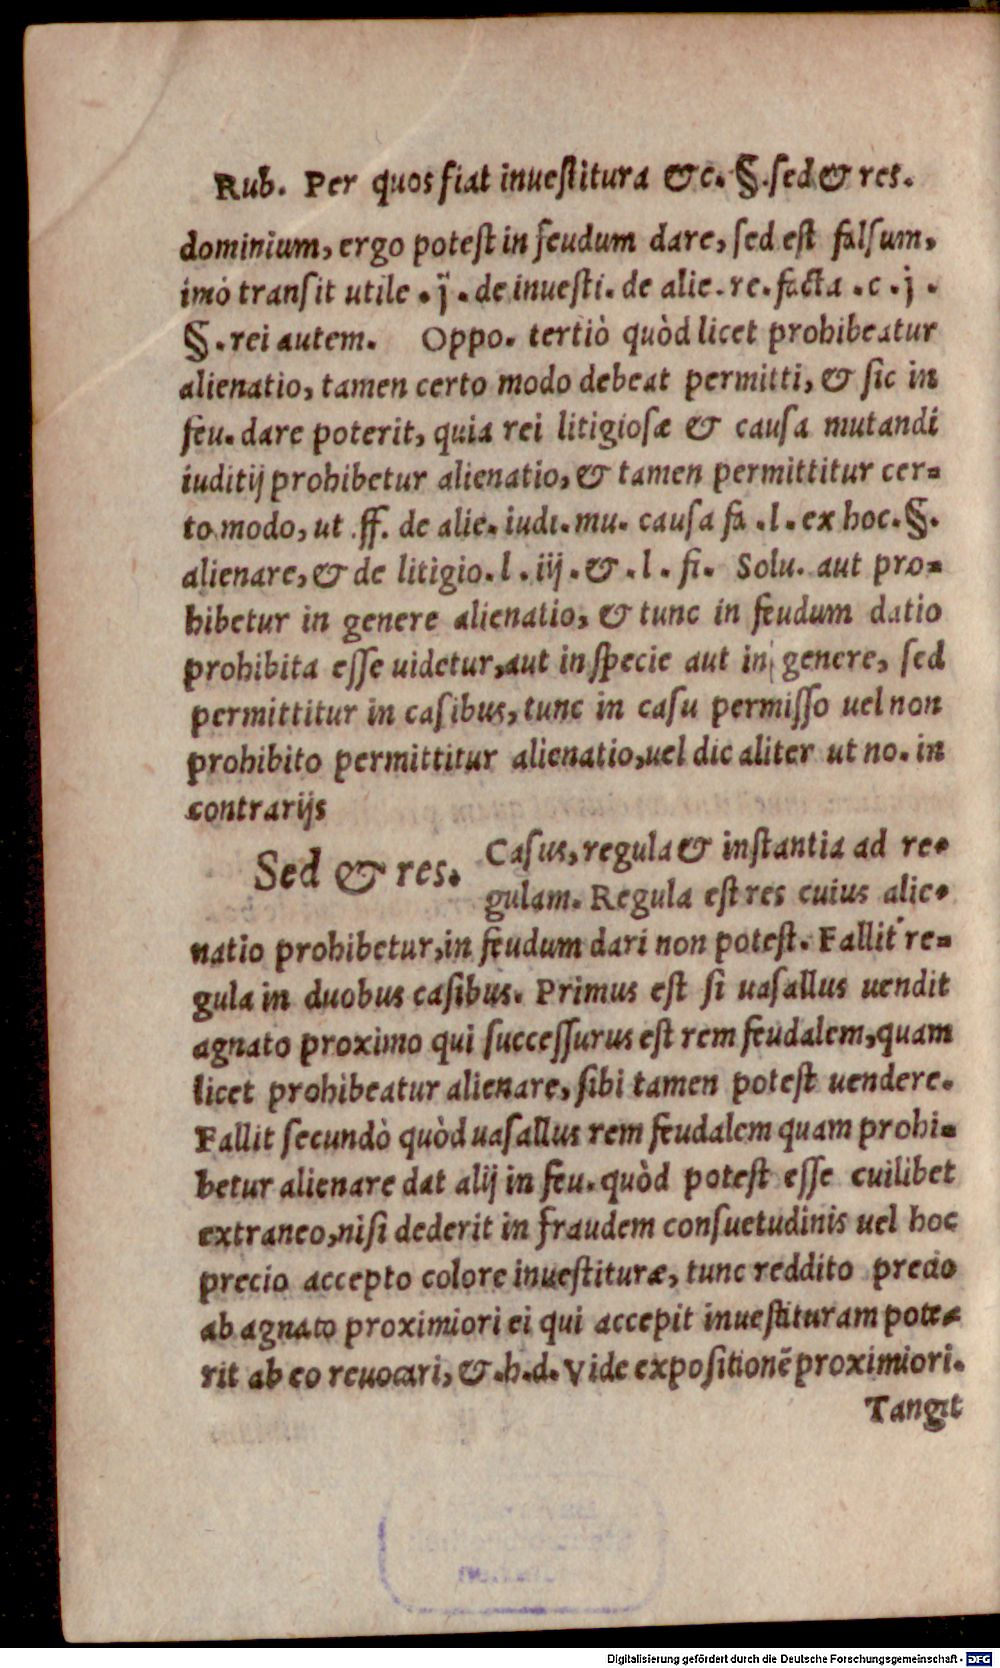 Rub. Per quos fiat inuestitura &c. §. sed & res.
dominium, ergo potest in feudum dare, sed est falsum,
imò transit utile . ij . de inuesti. de alie. re. facta . c . j .
§. rei autem. Oppo. tertiò quòd licet prohibeatur
alienatio, tamen certo modo debeat permitti, & sic in
feu. dare poterit, quia rei litigiosæ & causa mutandi
iuditij prohibetur alienatio, & tamen permittitur cer-
to modo, ut ff. de alie. iudi. mu. causa fa . l. ex hoc. §.
alienare, & de litigio. l . iij . & . l . fi. Solu. aut pro-
hibetur in genere alienatio, & tunc in feudum datio
prohibita esse uidetur, aut in specie aut in genere, sed
permittitur in casibus, tunc in casu permisso uel non
prohibito permittitur alienatio, uel dic aliter ut no. in
contrarijs
Sed & res. Casus, regula & instantia ad re-
gulam. Regula est res cuius alie-
natio prohibetur, in feudum dari non potest. Fallit re-
gula in duobus casibus. Primus est si uasallus uendit
agnato proximo qui successurus est rem feudalem, quam
licet prohibeatur alienare, sibi tamen potest uendere.
Fallit secundò quòd uasallus rem feudalem quam prohi-
betur alienare dat alij in feu. quòd potest esse cuilibet
extraneo, nisi dederit in fraudem consuetudinis uel hoc
precio accepto colore inuestituræ, tunc reddito precio
ab agnato proximiori ei qui accepit inuestituram pote-
rit ab eo reuocari, & .h.d. Vide expositionē proximiori.
Tangit
Digitalisierung gefördert durch die Deutsche Forschungsgemeinschaft - DFG